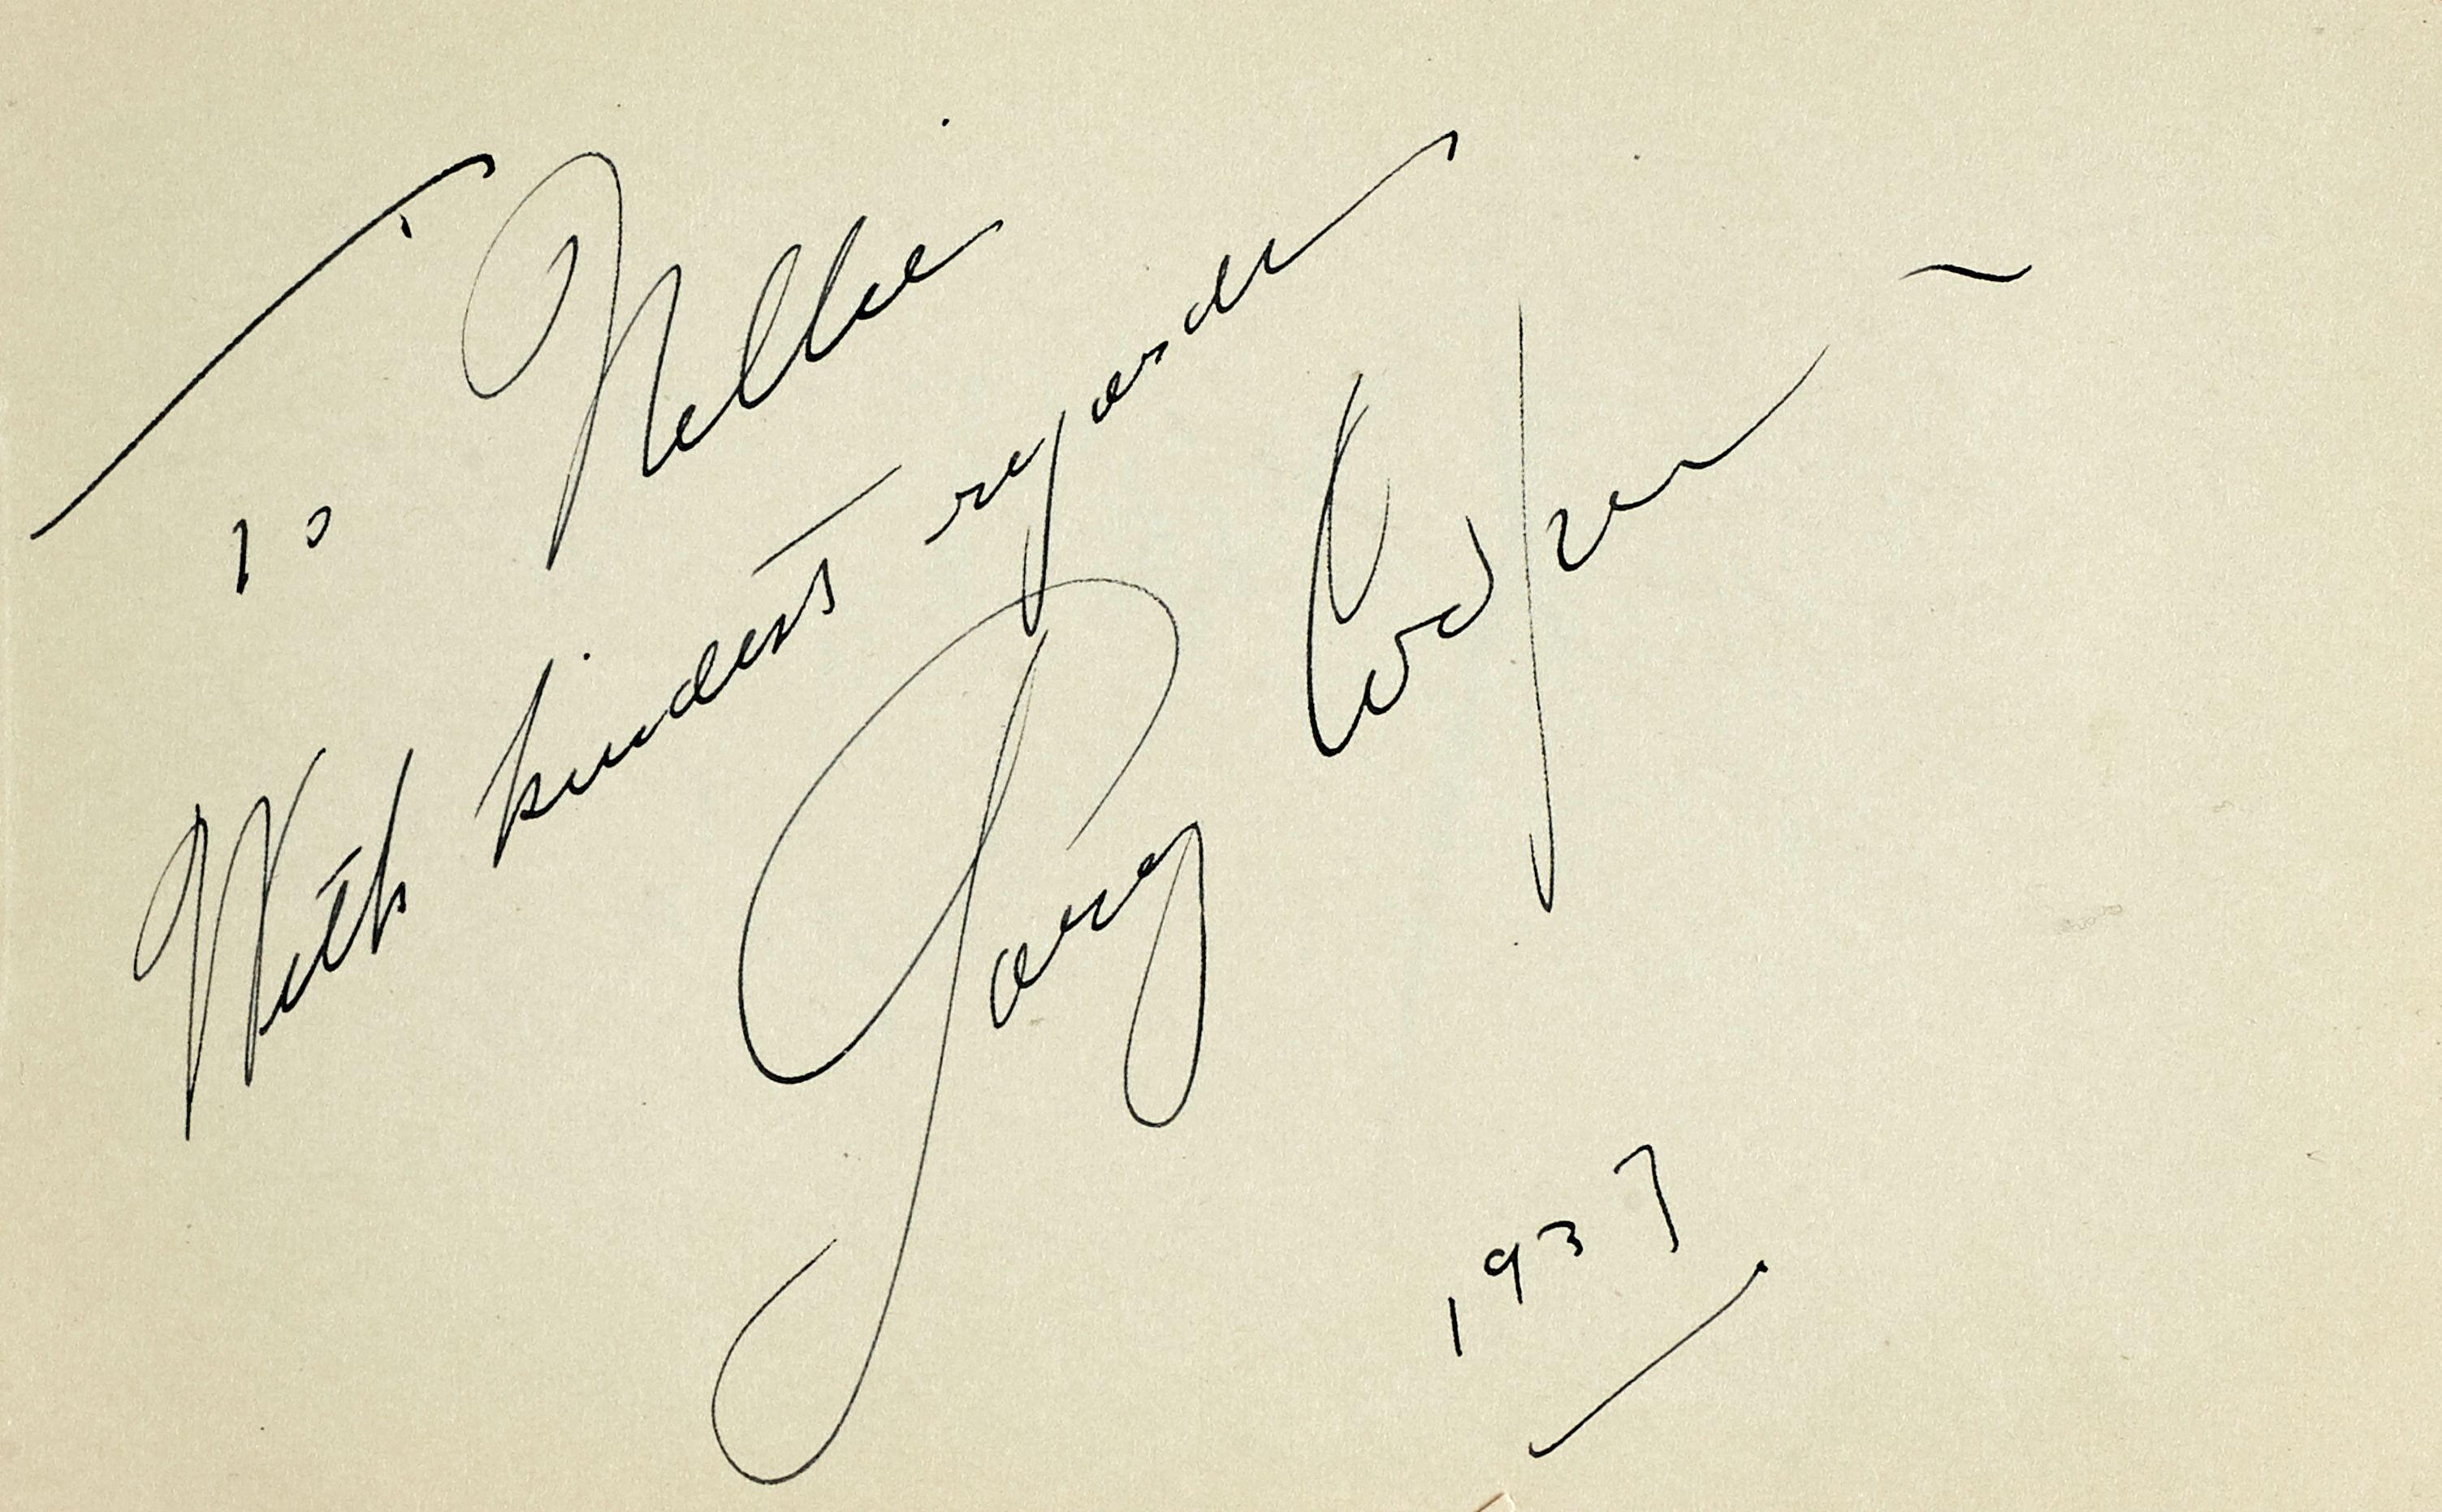 To Nellie
With kindest regards
Gary Cooper
1937